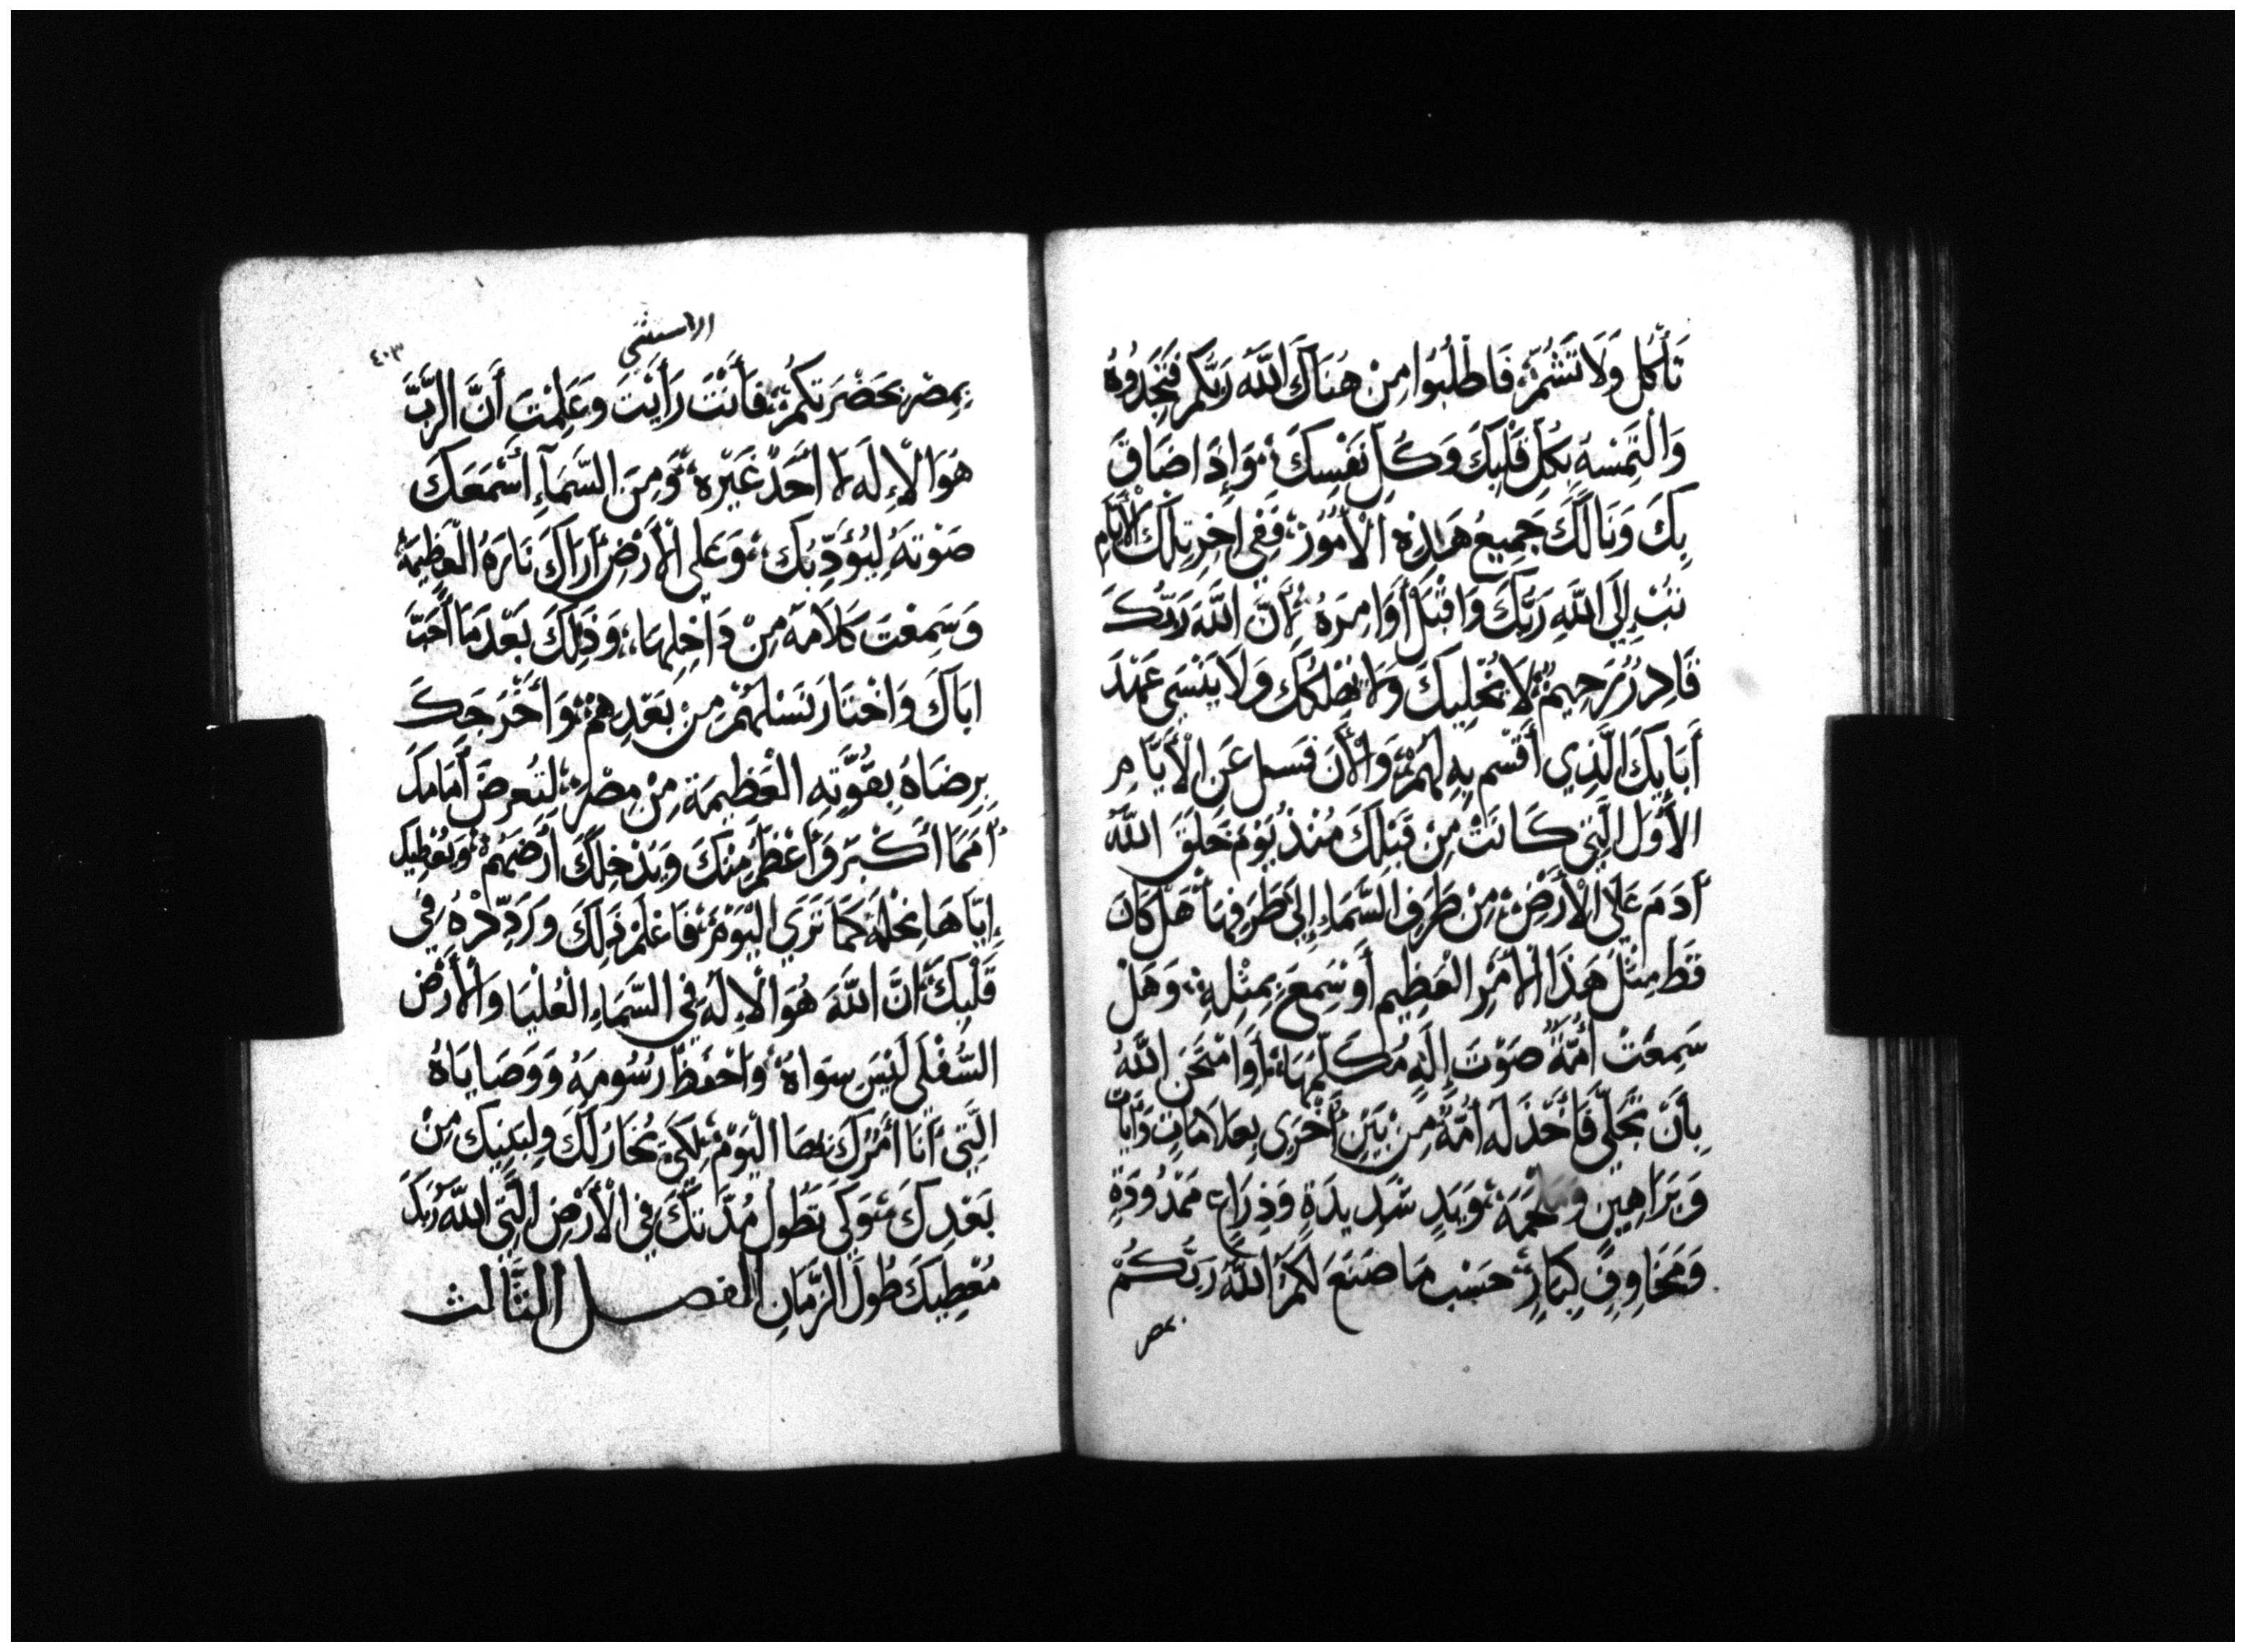 تَأْكُل وَلَا تَشُمّ، فَاطْلُبُوا مِنْ هُنَاكَ اللَّه رَبَّكم فَتَجِدُوهُ
وَالْتَمِسْهُ بِكُلِّ قَلْبِكَ وَكُلِّ نَفْسِكَ، وَإِذَا ضَاقَ
بِكَ وَنَالَكَ جَمِيعُ هَذِهِ الْأُمُوُر، فَفِي اخِرِ تِلْكَ الْأَيَّامِ
تَتُبْ إِلَى اللَّهِ رَبِّكَ وَاقْبَلْ أَوَامِرَهُ لِأَنَّ اللَّهَ رَبَّكَ
قَادِرُ رَحِيمٌ لَا يُخْلِيكَ وَلَا يُهْلِكُكَ وَلَا يَنْسَى عَهْدَ
أَبَايِكَ الَّذِي أَقْسَم بِهِ لَهُمْ، وَالْأَنَ فَسل عَنِ الْأَيَّامِ
الأُوَلِ الَّتِي كَانَتْ مِنْ قَبْلِكَ مُنْذُ يَوْمَ خَلَقَ اللَّه
أَدَمَ عَلَى الْأَرْضِ، مِنْ طَرَفِ السَّمَاءِ إِلَى طَرَفِهَا هَلْ كَانَ
قَط مِثْلَ هَذَا الْأَمْرِ الْعَظِيمِ أَوْ سَمِعَ بِمِثْلِهِ، وَهَلْ
سَمِعَتْ أُمَّةً صَوْتَ إِلَهٍ مُكَلِّمهَا، أَوَامْتَحَنَ اللَّهُ
بِأَنْ تَجَلَّى فَاتَّخَذَ لَهُ أُمَّةً مِنْ بَيْنِ أُخْرَى بِعَلَامَاتٍ وَأَيَاتٍ
وَبَرَاهِين وَمَلْحَمَة، وَبَيَدٍ شَدِيدَةٍ وَذِرَاعٍ مَمْدُودَةٍ
وَمَخَاوِفٍ كِبَارٍ، حَسْبَ مَا صَنَعَ لَكُمُ اللَّهُ رَبُّكُمْ
بمصر
الاستثنى
٤٠٣
بِمِصْرَ بِحَضْرَتِكُمْ، فَأَنْتَ رَأَيْتَ وَعَلِمْتَ أَنَّ الرَّبَّ
هُوَ الْإِلَه لَا أَحَدْ غَيْرهُ، وَمِنَ السَّمَآءِ أَسْمَعَكَ
صَوْتهُ لِيُؤَدِّبُك، وَعَلَى الْأَرْضِ أَرَاكَ نَارَهُ الْعَظِيمَةَ
وَسَمِعْتَ كَلَامَهُ مِنْ دَاخِلِهَا، وَذَلِكَ بَعْدَ مَا أَحَبَّ
ابَاكَ وَاخْتَارَ نَسْلَهُمْ مِنْ بَعْدِهِمْ، وَأَخْرَجَكَ
بِرِضَاهُ بِقُوَّتِهِ الْعَظِيمَةِ مِنْ مِصْر، لِتُعرضَ أَمَامَكَ
أُمَمًا أَكْبَر وَأَعْظَم مِنْكَ وَيُدْخِلكَ أَرْضَهُمْ، وَيُعْطِيك
إِيَّاهَا نِحْلَةً كَمَا تَرَى الْيَوْمَ، فَاعْلَمْ ذَلِكَ وَرَدِّدْهُ فِي
قَلْبِكَ، أَنَّ اللَّهَ هُوَ الْإِلَهُ فِي السَّمَاءِ الْعُلْيَا وَالْأَرْضِ
السُّفْلَى لَيْسَ سِوَاهُ، وَاحْفَظْ رُسُومَهُ وَوَصَايَاهُ
الَّتِي أَنَا أَمُرُكَ بهَا الْيَوْمَ، لِكَيْ يُخَارَ لَكَ وَلِبَنِيك مِنْ
بَعْدِكَ، وَكَي تَطُولَ مُدَّتكَ فِي الْأَرْضِ الَّتِي اللَّه رَبّكَ
مُعْطِيكَ طُولَ الزَّمَانِ الفصل الثَّالث